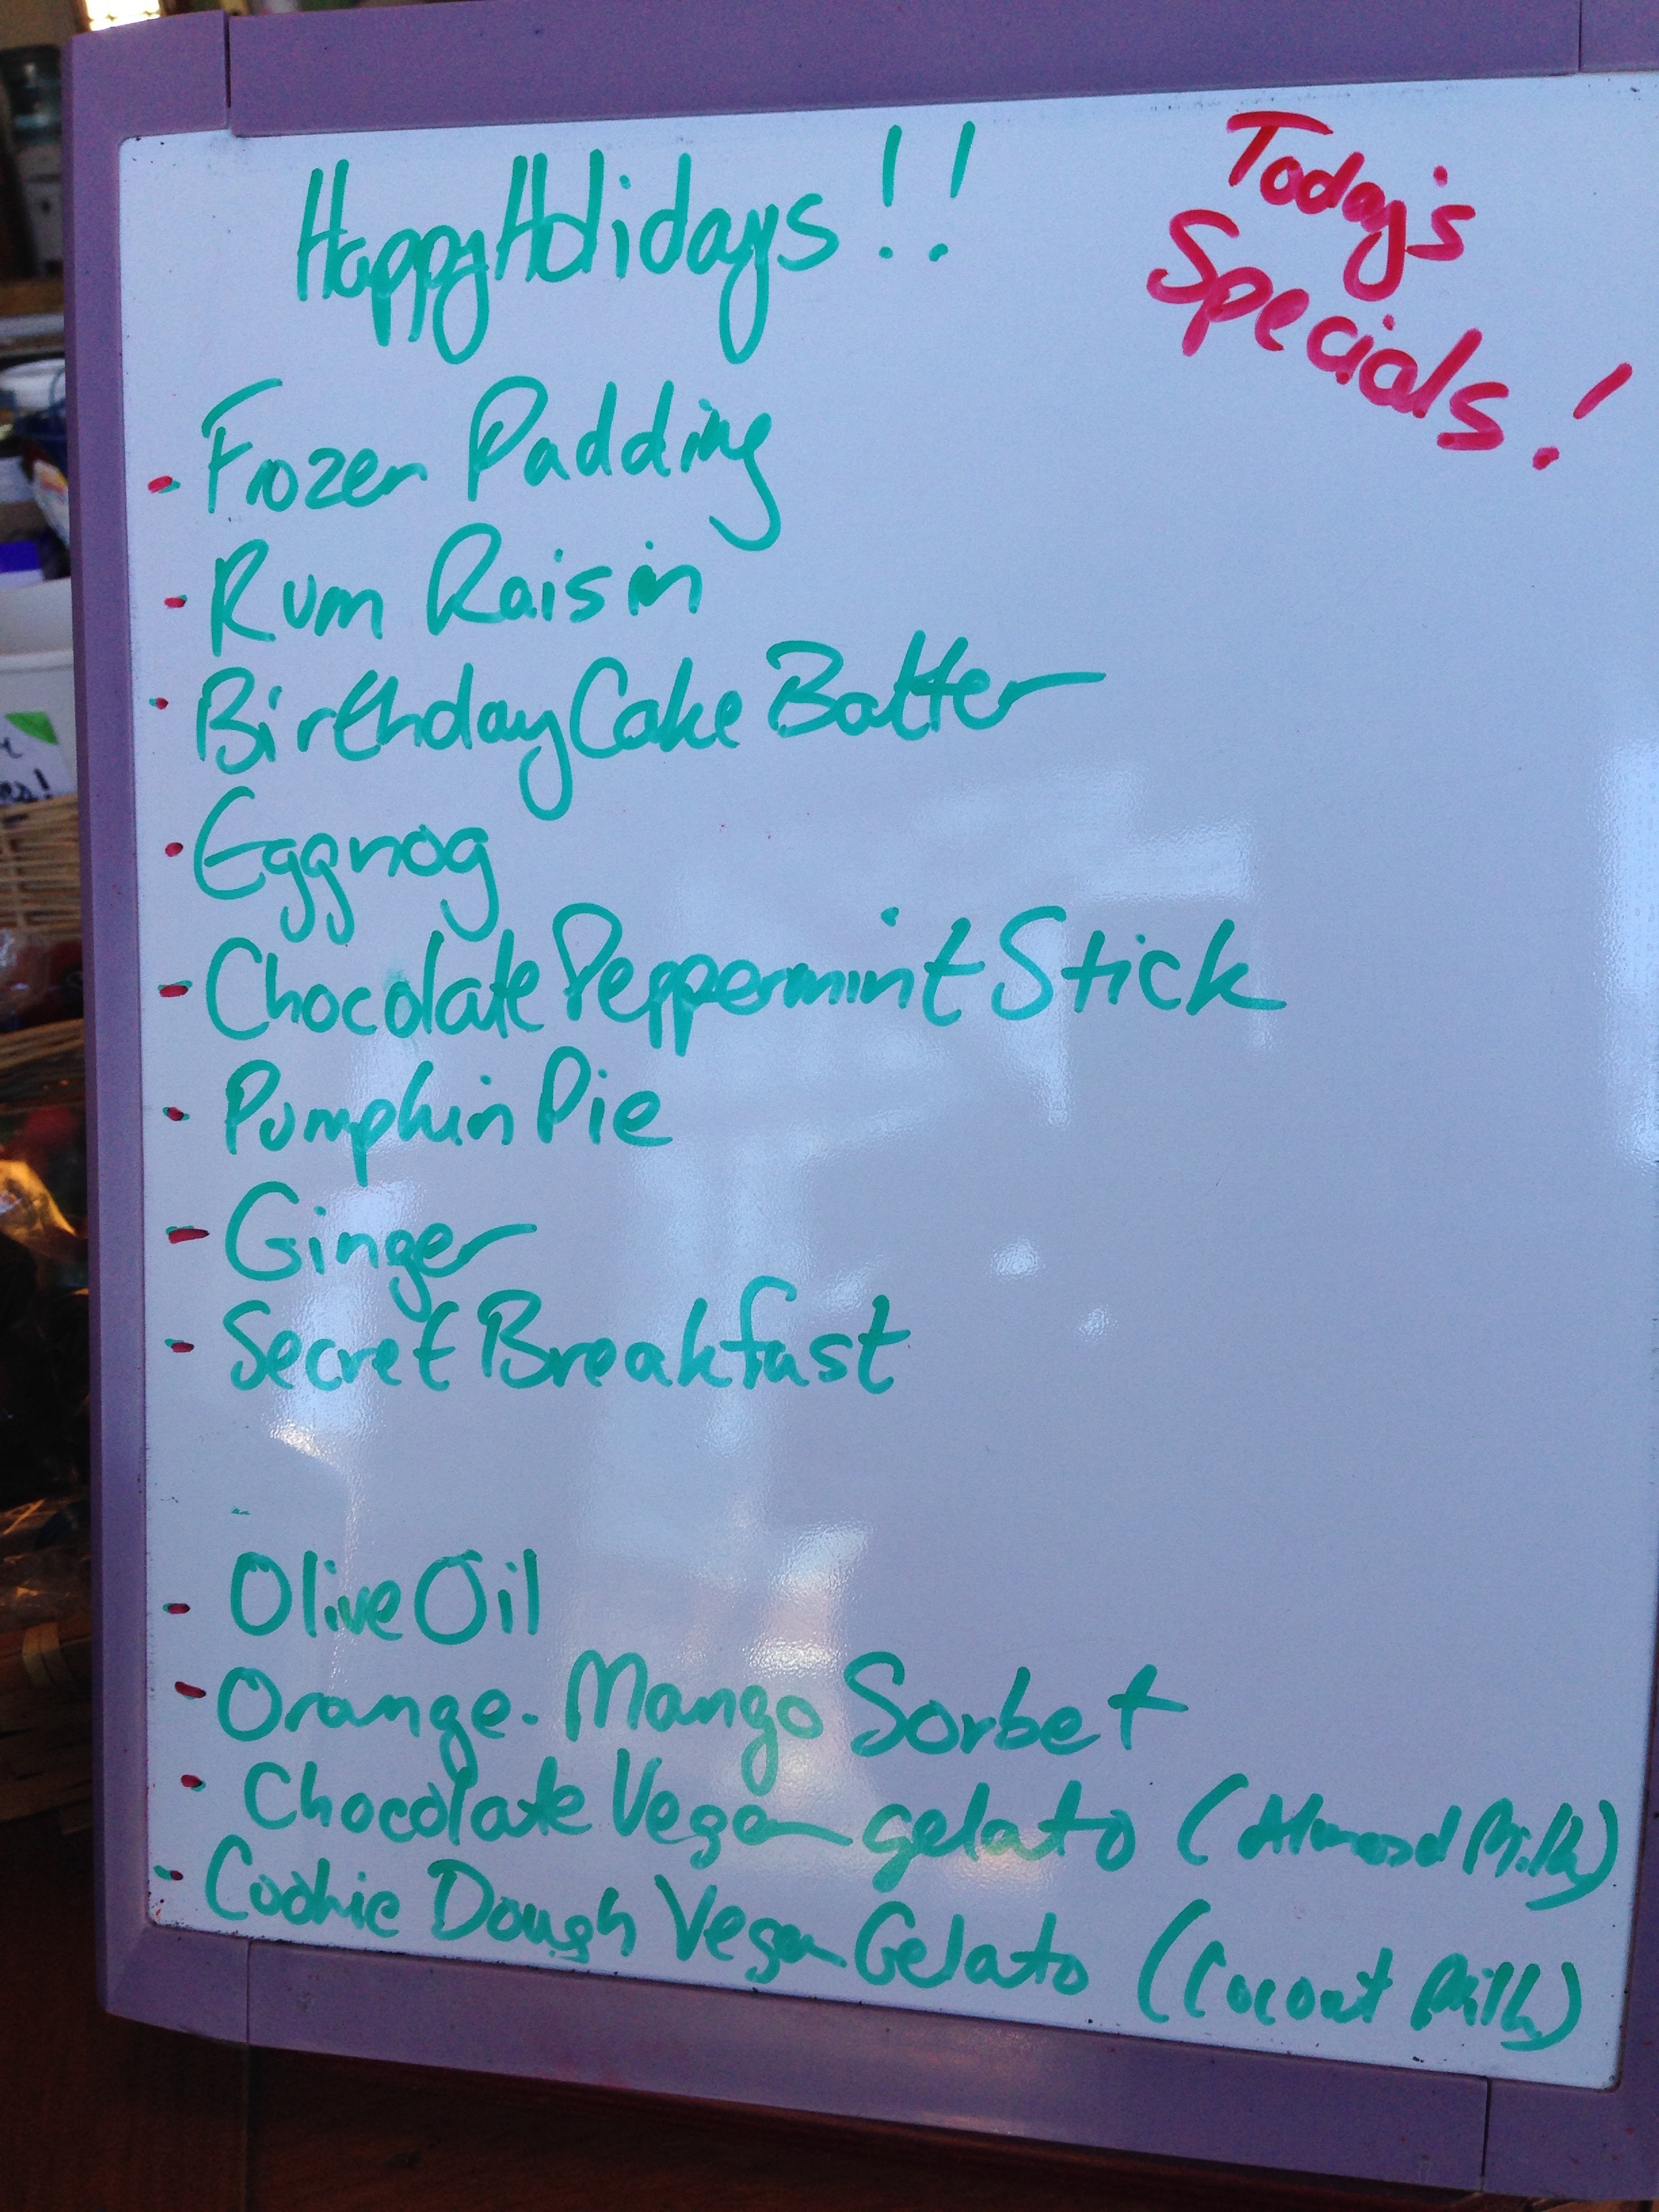 Happy Holidays!!
Today's
Specials!
- Frozen Padding
- Rum Raisin
- Birthday Cake Batter
- Eggnog
- Chocolate Peppermint Stick
- Pumpkin Pie
- Ginger
- Secret Breakfast
- Olive Oil
- Orange-Mango Sorbet
- Chocolate Vegan gelato (Almond Milk)
- Cookie Dough Vegan Gelato (Coconut Milk)